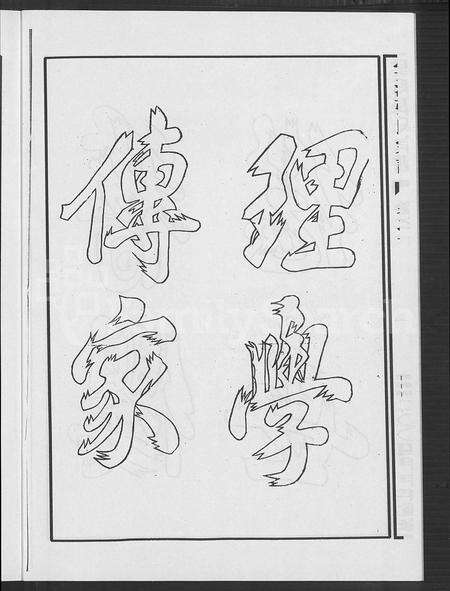 理學
傳家